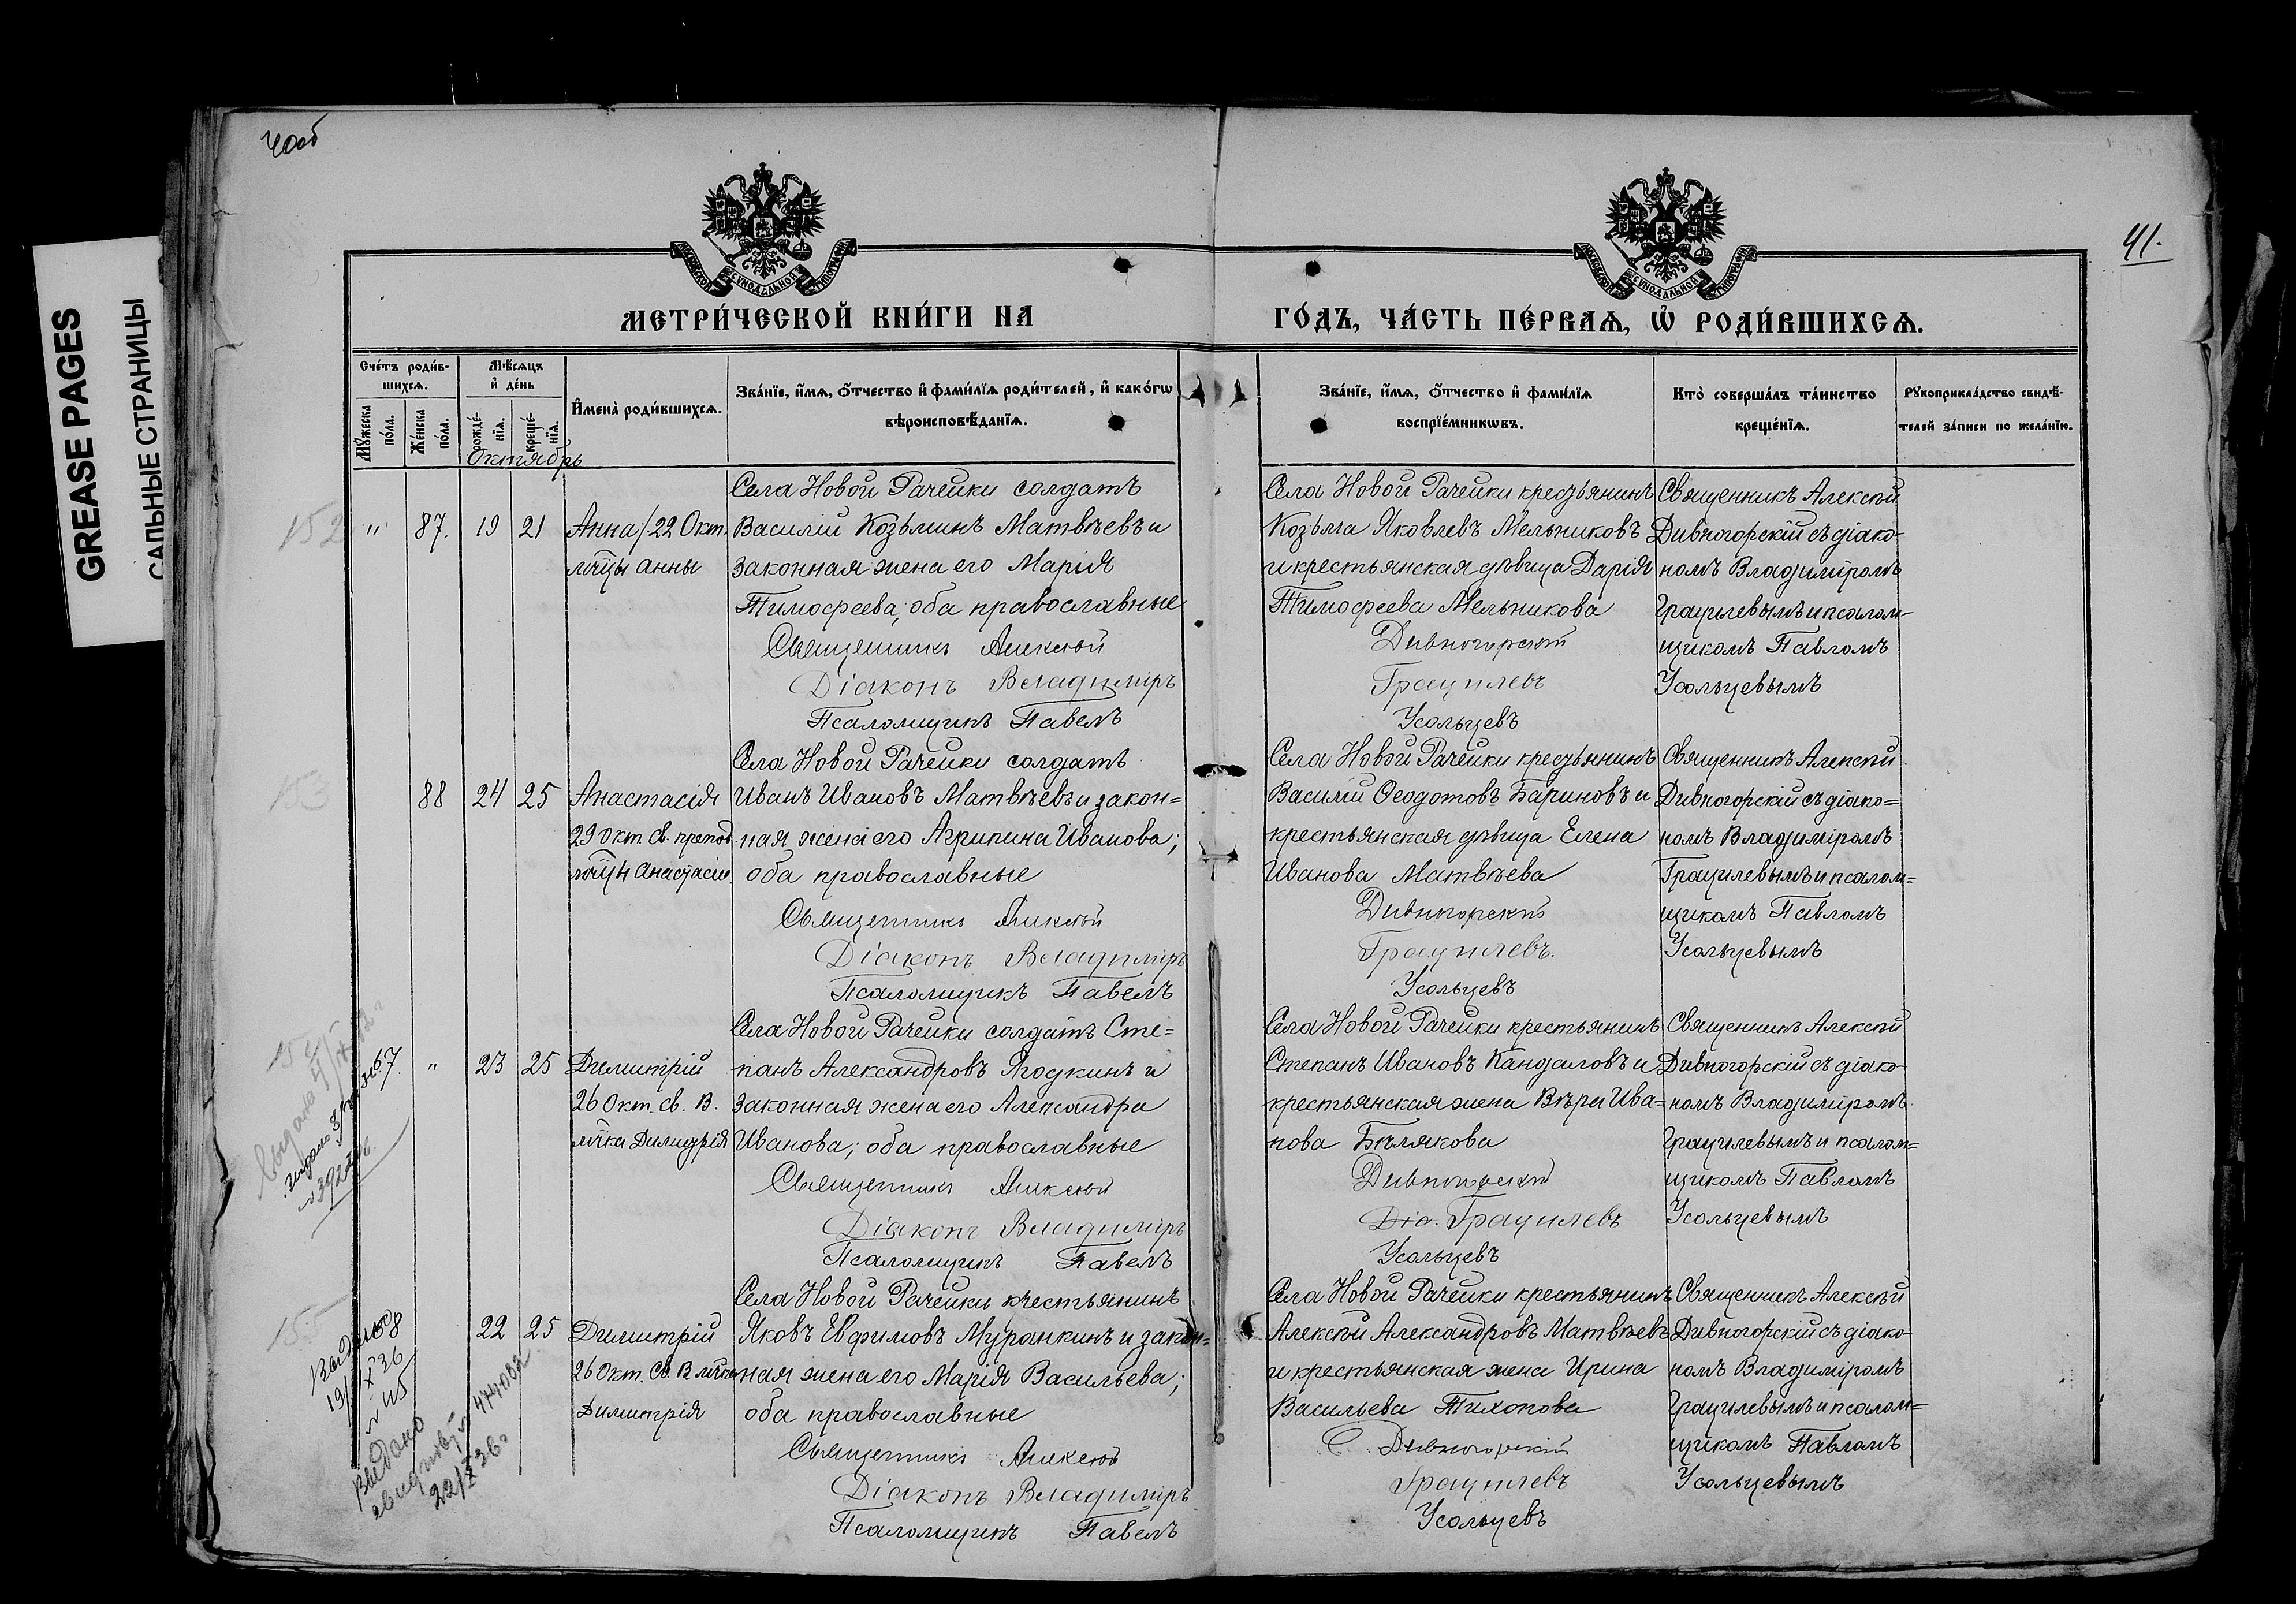 40об
41.
GREASE PAGES
САЛЬНЫЕ СТРАНИЦЫ
МОСКОВСКОЙ СѴНОДАЛЬНОЙ ТИПОГРАФІИ
МОСКОВСКОЙ СѴНОДАЛЬНОЙ ТИПОГРАФІИ
МЕТРИ́ЧЕСКОЙ КНИ́ГИ НА
ГО́ДЪ, ЧА́СТЬ ПЕ́РВАѦ, Ѡ҆ РОДИ́ВШИХСѦ.
Сче́тъ роди́в-
шихсѧ.
Мꙋ́жеска по́ла.
Же́нска по́ла.
Мѣ́сѧцъ
и҆ де́нь
рожде́-
нїѧ.
креще́-
нїѧ.
И҆мена̀ роди́вшихсѧ.
Зва́нїе, и҆́мѧ, ѻ҆́тчество и҆ фами́лїѧ роди́телей, и҆ како́гѡ
вѣроисповѣ́данїѧ.
Зва́нїе, и҆́мѧ, ѻ҆́тчество и҆ фами́лїѧ
воспрїе́мникѡвъ.
Кто̀ соверша́лъ та́инство
креще́нїѧ.
Рꙋкоприкла́дство свидѣ́-
телей за́писи по жела́нїю.
Октябрь
152
" 87. 19 21
Анна/22 Окт.
мчцы Анны
Села Новой Рачейки солдатъ
Василій Козьминъ Матвѣевъ и
законная жена его Марія
Тимофеева; оба православные
Священникъ Алексій
Діаконъ Владиміръ
Псаломщикъ Павелъ
Села Новой Рачейки крестьянинъ
Козьма Яковлевъ Мельниковъ
и крестьянская дѣвица Дарія
Тимофеева Мельникова
Дивногорскій
Грацилевъ
Усольцевъ
Священникъ Алексій
Дивногорскій съ діако-
номъ Владиміромъ
Грацилевымъ и псалом-
щикомъ Павломъ
Усольцевымъ
153
88 24 25
Анастасія
29 Окт. св. препод.
мчцы Анастасіи
Села Новой Рачейки солдатъ
Иванъ Ивановъ Матвѣевъ и закон=
ная жена его Агрипина Иванова;
оба православные
Священникъ Алексій
Діаконъ Владиміръ
Псаломщикъ Павелъ
Села Новой Рачейки крестьянинъ
Василій Ѳеодотовъ Бариновъ и
крестьянская дѣвица Елена
Иванова Матвѣева
Дивногорскій
Грацилевъ.
Усольцевъ
Священникъ Алексій
Дивногорскій съ діако=
номъ Владиміромъ
Грацилевымъ и псалом=
щикомъ Павломъ
Усольцевымъ
67. " 23 25
Димитрій
26 Окт. св. В.
мчка Димитрія
Села Новой Рачейки солдатъ Сте=
панъ Александровъ Ягодкинъ и
законная жена его Александра
Иванова; оба православные
Священникъ Алексій
Діаконъ Владиміръ
Псаломщикъ Павелъ
Села Новой Рачейки крестьянинъ
Степанъ Ивановъ Кандаловъ и
крестьянская жена Вѣра Ива=
нова Бѣлякова
Дивногорскій
Діа. Грацилевъ
Усольцевъ
Священникъ Алексій
Дивногорскій съ діако-
номъ Владиміромъ
Грацилевымъ и псалом=
щикомъ Павломъ
Усольцевымъ
155
68
22 25
Димитрій
26 Окт. Св. В мчка
Димитрія
Села Новой Рачейки крестьянинъ
Яковъ Евфимовъ Муранкинъ и закон=
ная жена его Марія Васильева;
оба православные
Священникъ Алексій
Діаконъ Владиміръ
Псаломщикъ Павелъ
Села Новой Рачейки крестьянинъ
Алексѣй Александровъ Матвѣевъ
и крестьянская жена Ирина
Васильева Тихонова
С. Дивногорскій
Грацилевъ
Усольцевъ
Священникъ Алексѣй
Дивногорскій съ діако-
номъ Владиміромъ
Грацилевымъ и псалом=
щикомъ Павломъ
Усольцевымъ
Выдано
22/X 36г